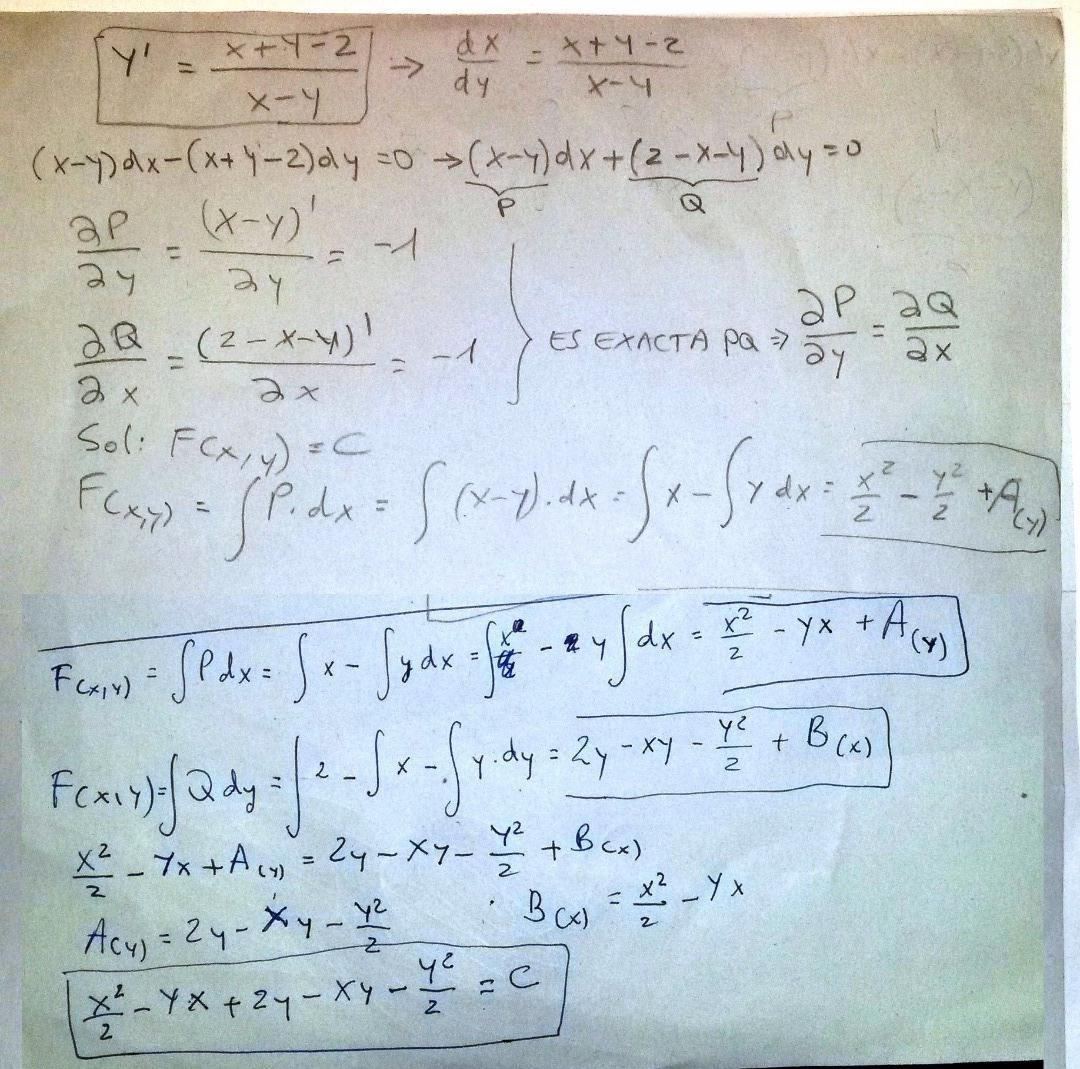 y' = (x+y-2)/(x-y) → dx/dy = (x+y-2)/(x-y)
(x-y)dx-(x+y-2)dy =0 → (x-y)dx+(2-x-y)dy=0
P Q
∂P/∂y = (x-y)'/∂y = -1
∂Q/∂x = (2-x-y)'/∂x = -1 } ES EXACTA PQ ⇒ ∂P/∂y = ∂Q/∂x
Sol: F(x,y) = C
F(x,y) = ∫P.dx = ∫(x-y).dx = ∫x-∫y dx = x²/2 - y²/2 + A(y)
F(x,y) = ∫Pdx = ∫x - ∫ydx = ∫x - y∫dx = x²/2 - yx + A(y)
F(x,y) = ∫Qdy = ∫2 - ∫x - ∫y.dy = 2y - xy - y²/2 + B(x)
x²/2 - yx + A(y) = 2y - xy - y²/2 + B(x)
A(y) = 2y - xy - y²/2 . B(x) = x²/2 - yx
x²/2 - yx + 2y - xy - y²/2 = C